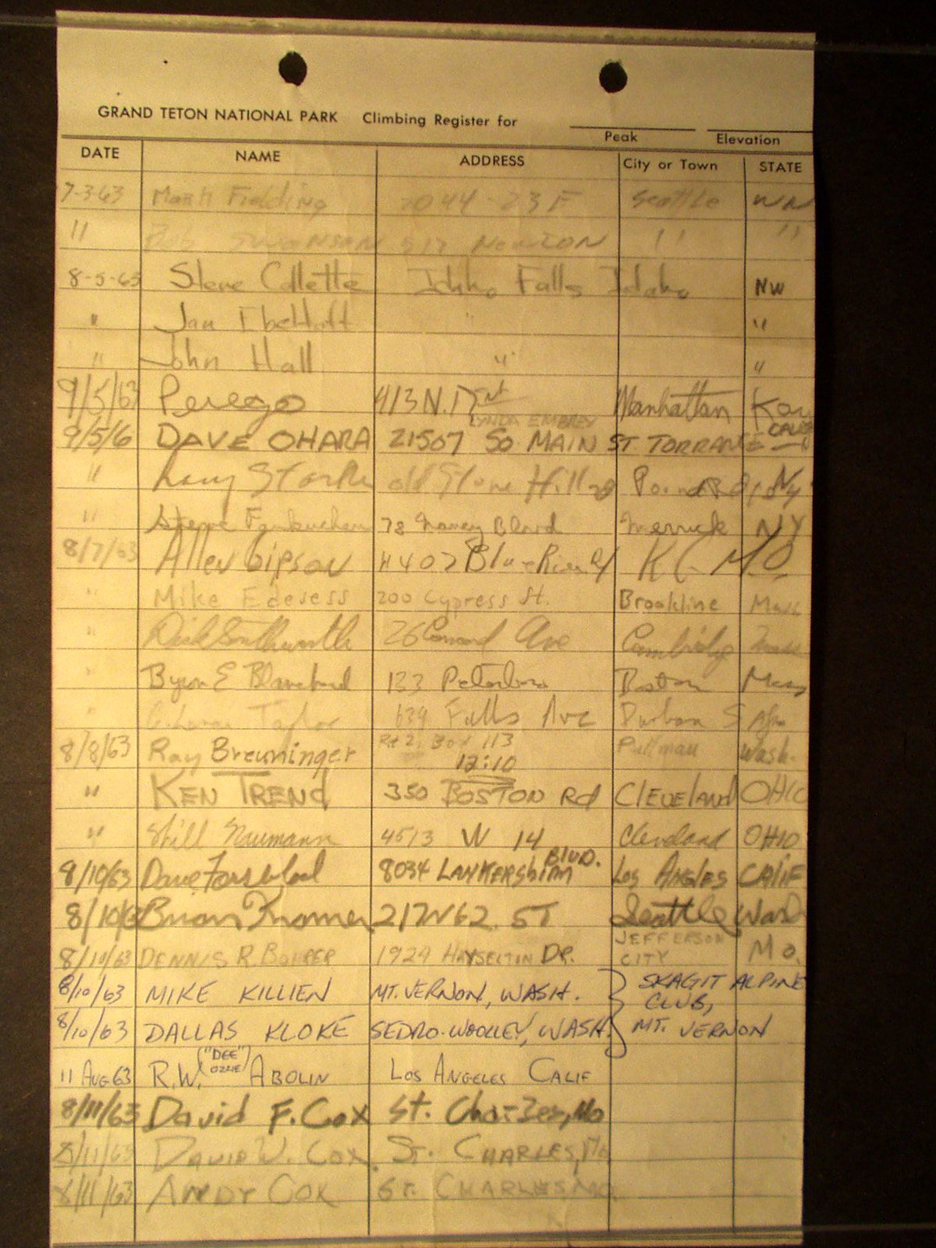 GRAND TETON NATIONAL PARK Climbing Register for
Peak Elevation
DATE NAME ADDRESS City or Town STATE
7-3-63 Mark Fielding Seattle WN
" Bob Swanson 517 Newton " "
8-5-63 Steve Collette Idaho Falls Idaho NW
" Jan "
" John Hall " "
9/5/63 Perego 413 N. Manhattan
LYNDA EMBREY CALIF
9/5/6 DAVE OHARA 21507 SO MAIN ST. TORRANCE
" Old Stone Hill NY
" Steve 78 Blvrd Merrick NY
8/7/63 Allen Gipson 4402 Blue River K C MO.
" Mike Edesess 200 Cypress St. Brookline Mass
" Dick Southworth 26 Concord Ave Cambridge Mass
" Byron E Blanchard 133 Boston Mass
" Taylor 634 Falls Ave Durban S Afr
8/8/63 Ray Breuninger Rt 2, Box 113 Pullman Wash.
12:10
" KEN TREND 350 BOSTON Rd CLEVELAND OHIO
" Neumann 4513 W 14 Cleveland OHIO
8/10/63 Dave Forsblad 8034 LANKERSHIM BLVD. Los Angles CALIF
8/10/63 Brian 217 W 62 ST Seattle Wash
8/10/63 DENNIS R. 1924 DR. JEFFERSON CITY Mo.
8/10/63 MIKE KILLIEN MT. VERNON, WASH. SKAGIT ALPINE CLUB,
8/10/63 DALLAS KLOKE SEDRO-WOOLLEY, WASH. MT. VERNON
11 AUG 63 R.W. ("DEE") ABOLIN LOS ANGELES CALIF
8/11/63 David F. Cox St. Charles, Mo
8/11/63 DAVID W. COX ST. CHARLES, Mo
8/11/63 ANDY COX ST. CHARLES MO.